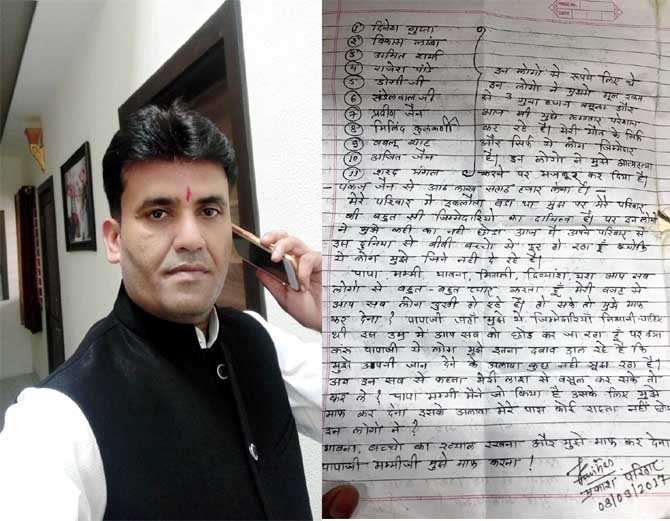 ① दिनेश गुप्ता
② विकास लांबा
③ अमित शर्मा
④ राजेश पांडे
⑤ डोसीजी
⑥ खंडेलवालजी
⑦ प्रवीण जैन
⑧ मिलिंद कुलकर्णी
⑨ बबलु
⑩ अजित जैन
⑪ शरद मंगल
इन लोगो से रूपये लिए थे
इन लोगो ने मुझसे मूल रकम
से 3 गुना ब्याज वसूला और
आज भी मुझे लगातार परेशान
कर रहे है। मेरी मौत के सिर्फ
और सिर्फ ये लोग जिम्मेदार
है, इन लोगो ने मुझे आत्महत्या
करने पर मजबूर कर दिया है।
- पंकज जैन से आठ लाख
मेरे परिवार में इकलौता बेटा था मुझ पर मेरे परिवार
की बहुत सी जिम्मेदारियो का दायित्व है। पर इन लोगो
ने मुझे कही का नही छोडा आज मै अपने परिवार से
इस दुनिया से बीबी बच्चो से दूर हो रहा हूँ क्योकि
ये लोग मुझे जिने नही दे रहे है।
पापा, मम्मी, भावना, दिव्यांश, आप सब
लोगो से बहुत-बहुत प्यार करता हूँ मेरी वजह से
आप सब लोग दुखी हो रहे है। हो सके तो मुझे माफ
कर देना। पापाजी जहाँ मुझे ये जिम्मेदारिया निभानी चाहिए
थी इस उम्र मे आप सब को छोड कर जा रहा हूँ पर क्या
करू पापाजी ये लोग मुझे इतना दबाव डाल रहे है कि
मुझे अपनी जान देने के अलावा कुछ नही सूझ रहा है।
अब इन सब से कहना मेरी लाश से वसूल कर सके तो
कर ले। पापा मम्मी मैने जो किया है उसके लिए मुझे
माफ कर देना इसके अलावा मेरे पास कोई रास्ता नही
इन लोगो ने ?
भावना, बच्चो का ख्याल रखना और मुझे माफ कर देना
पापाजी मम्मीजी मुझे माफ करना !
प्रकाश परिहार
08/09/2017